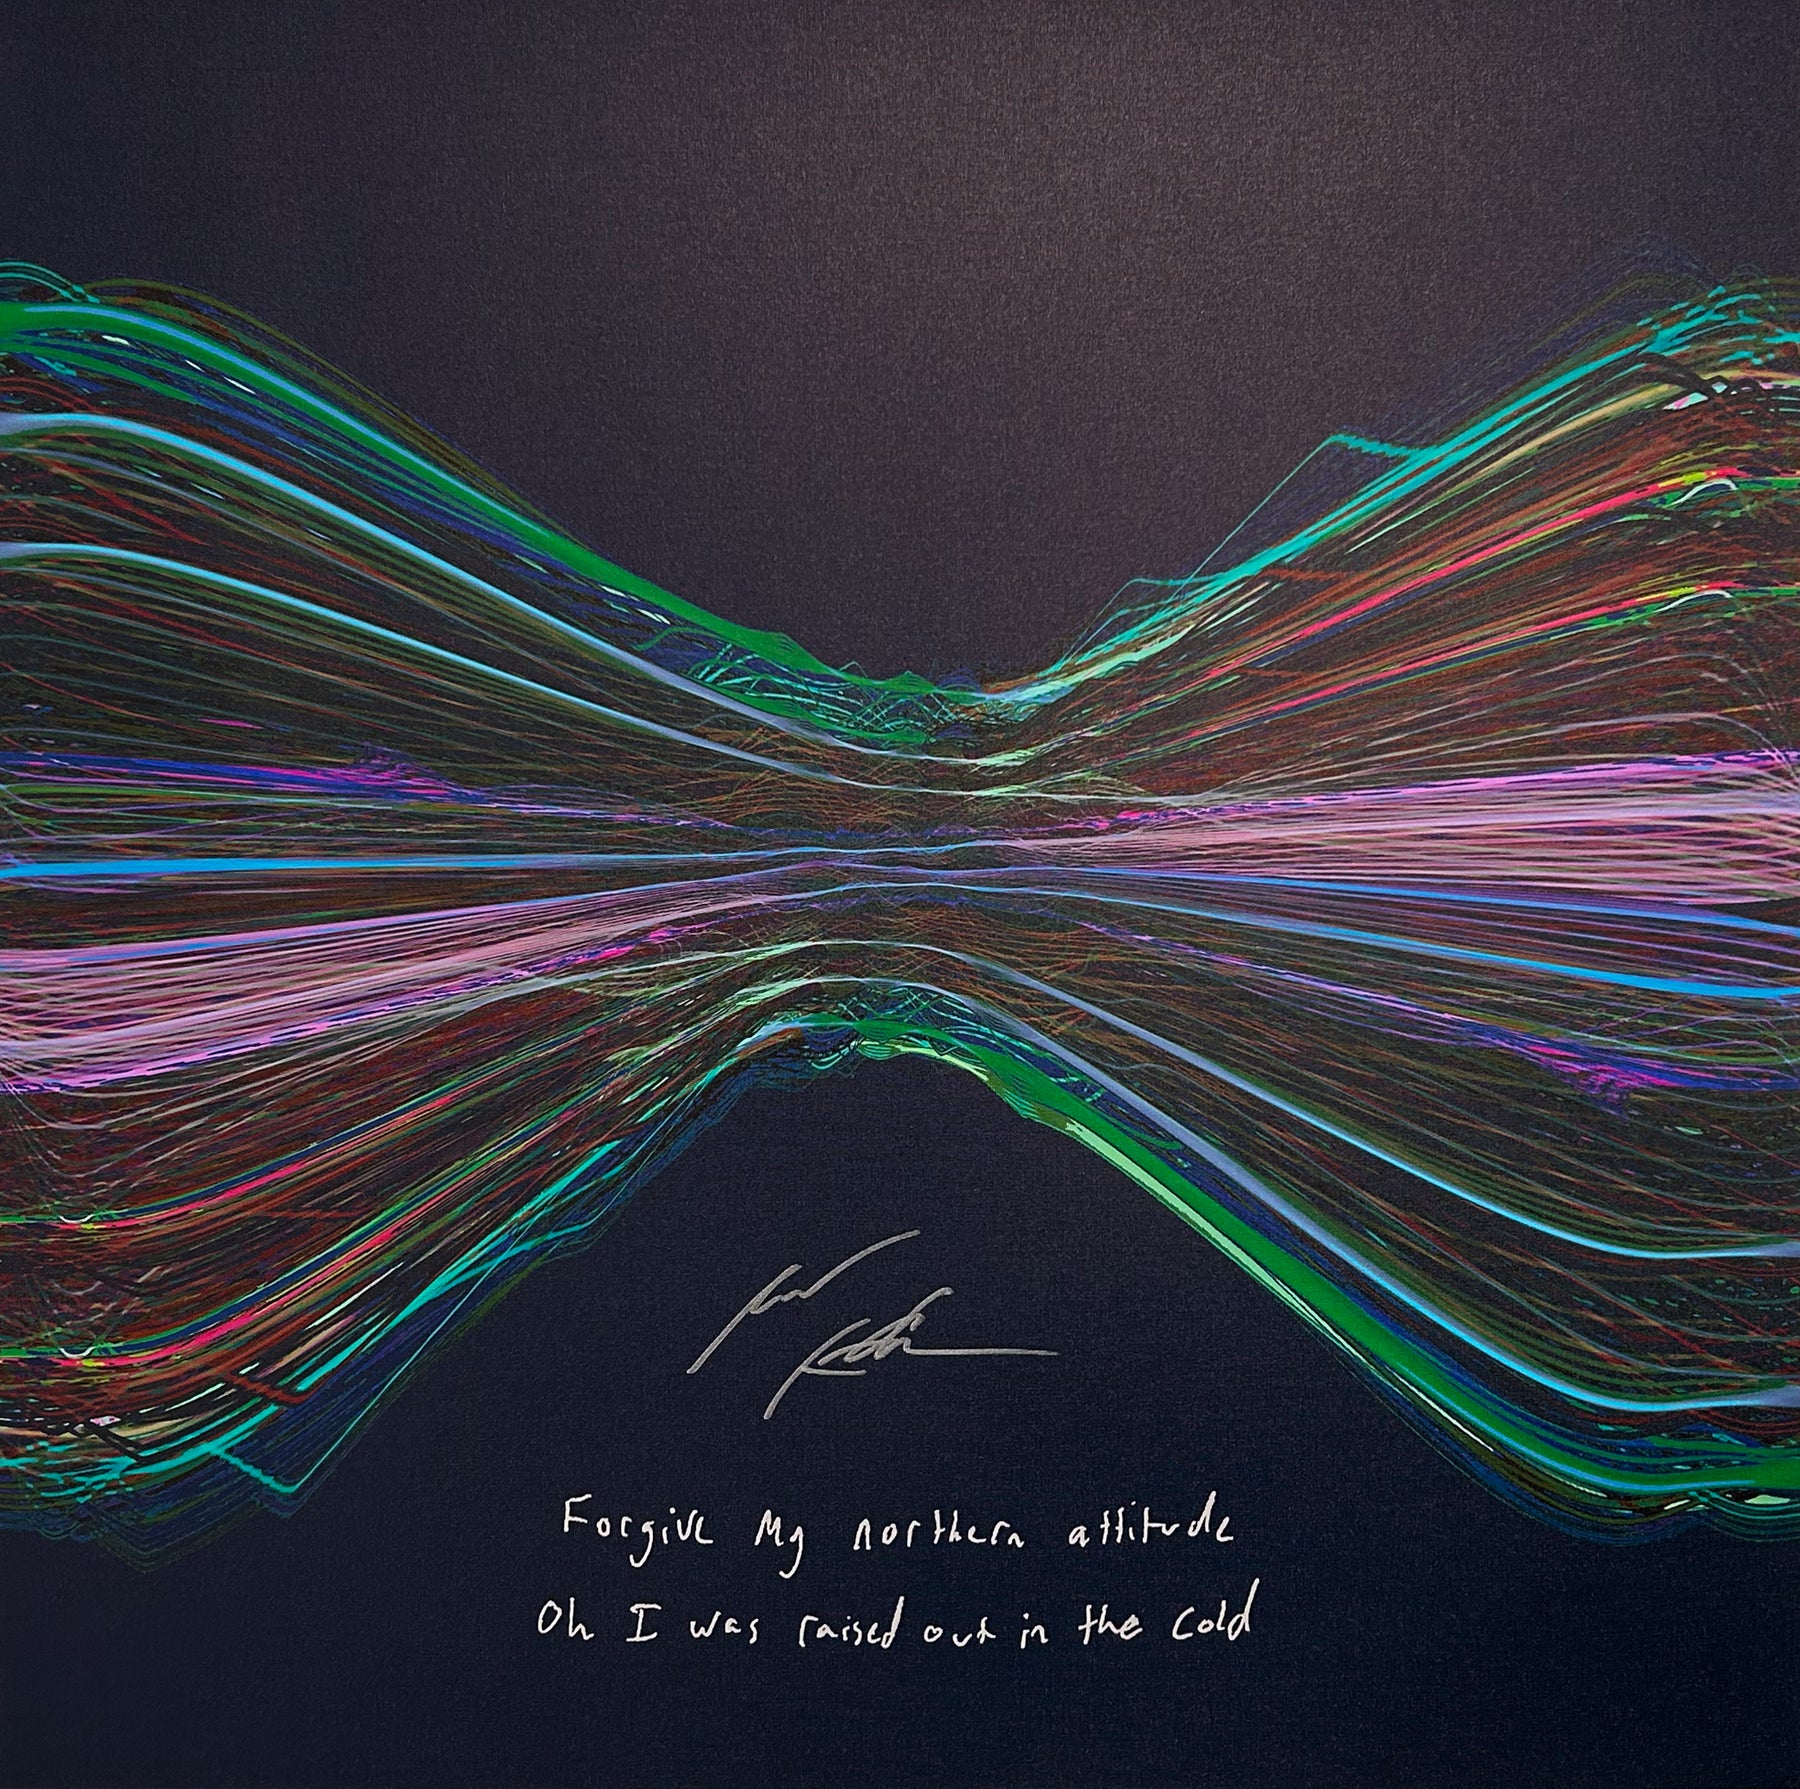 Forgive My northern attitude
Oh I was raised out in the cold